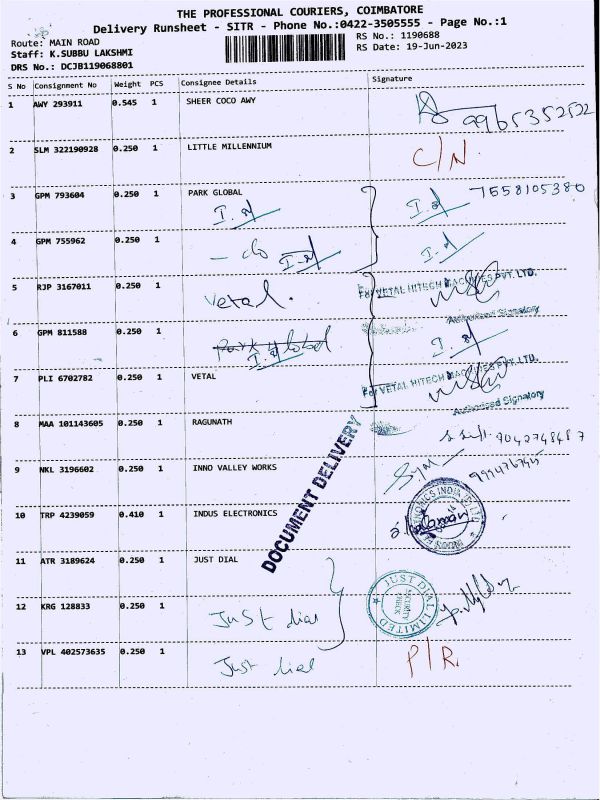 THE PROFESSIONAL COURIERS, COIMBATORE
Delivery Runsheet - SITR - Phone No.:0422-3505555 - Page No.:1
Route: MAIN ROAD
RS No.: 1190688
Staff: K.SUBBU LAKSHMI
RS Date: 19-Jun-2023
DRS No.: DCJB119068801
S No Consignment No Weight PCS Consignee Details Signature
1 AWY 293911 0.545 1 SHEER COCO AWY 9965352522
2 SLM 322190928 0.250 1 LITTLE MILLENNIUM C/N
3 GPM 793604 0.250 1 PARK GLOBAL 7558105380
4 GPM 755962 0.250 1 - do
5 RJP 3167011 0.250 1 Vetal. For VETAL HITECH MACHINES PVT. LTD.
Authorised Signatory
6 GPM 811588 0.250 1 Park Global
7 PLI 6702782 0.250 1 VETAL For VETAL HITECH MACHINES PVT. LTD.
Authorised Signatory
8 MAA 101143605 0.250 1 RAGUNATH
9 NKL 3196602 0.250 1 INNO VALLEY WORKS
DOCUMENT DELIVERY
10 TRP 4239059 0.410 1 INDUS ELECTRONICS
11 ATR 3189624 0.250 1 JUST DIAL
JUST DIAL LIMITED
SECURITY CHECK
12 KRG 128833 0.250 1 Just dial
13 VPL 402573635 0.250 1 Just dial P/R.